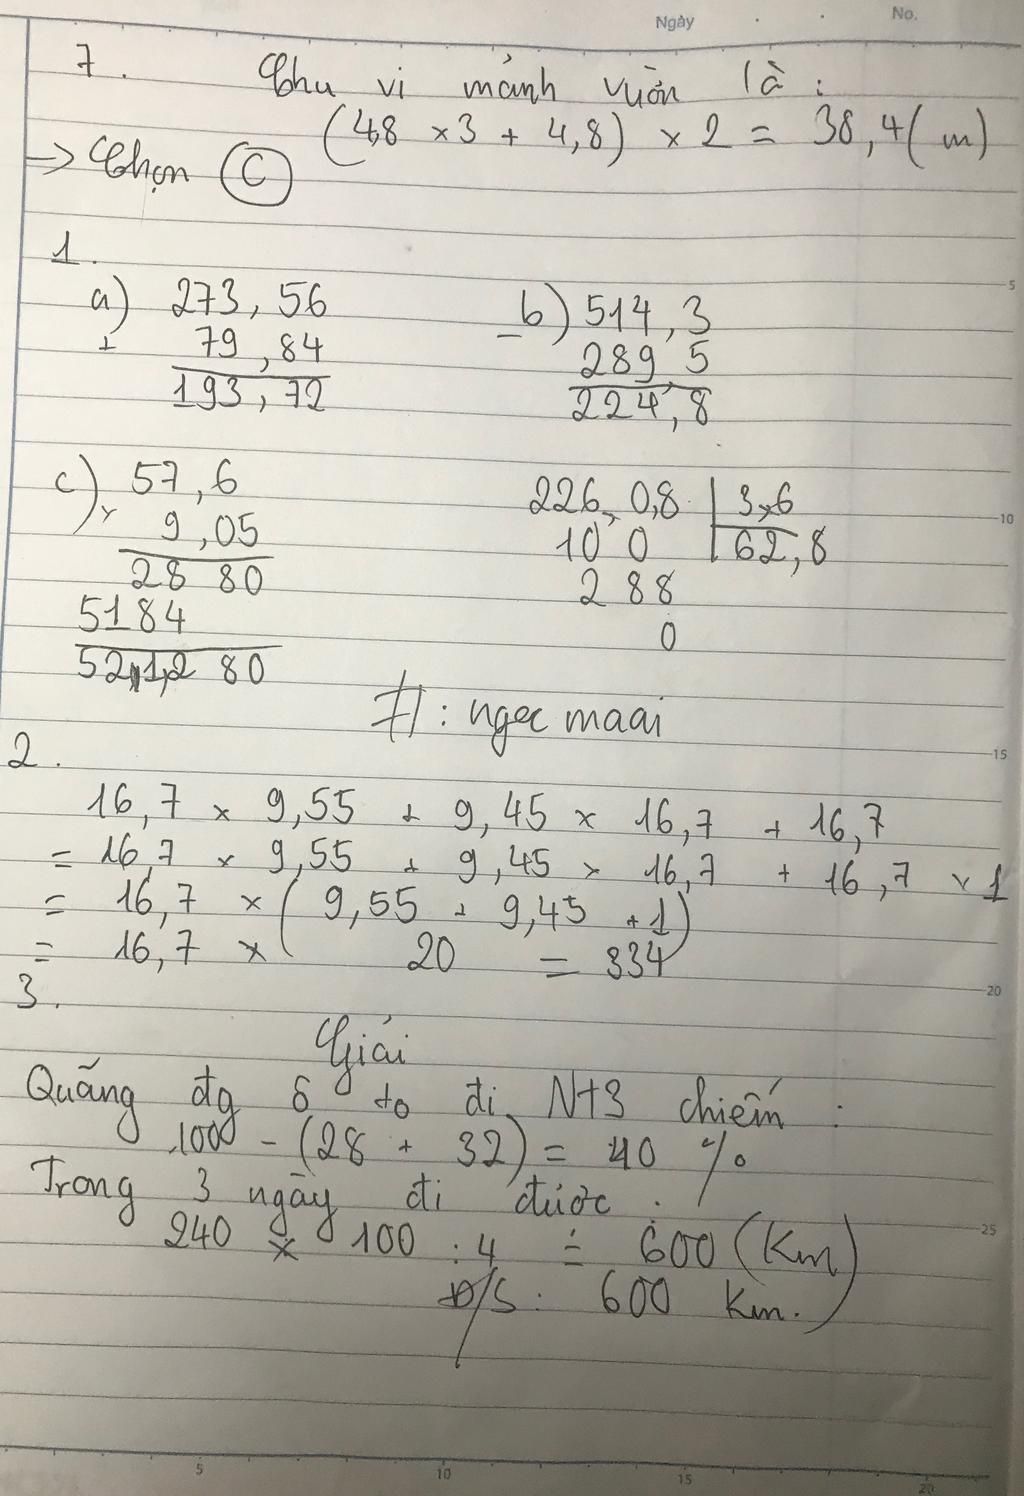 Ngày . . No.
7. Chu vi mảnh vườn là:
(4,8 × 3 + 4,8) × 2 = 38,4 (m)
→ Chọn C
1.
a) 273,56
+ 79,84
193,72
b) 514,3
- 289,5
224,8
c) 57,6
× 9,05
28 80
5184
521,280
226,0,8 3,6
10 0 62,8
2 88
0
FI: ngoc maai
2.
16,7 × 9,55 + 9,45 × 16,7 + 16,7
= 16,7 × 9,55 + 9,45 × 16,7 + 16,7 × 1
= 16,7 × (9,55 + 9,45 + 1)
= 16,7 × 20 = 334
3.
Giải
Quãng đg ô tô đi N+3 chiếm:
100 - (28 + 32) = 40 %
Trong 3 ngày đi được:
240 × 100 : 4 = 600 (Km)
Đ/S: 600 Km.
5
10
15
20
25
5 10 15 20